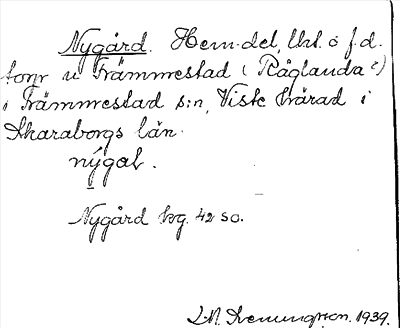 Nygård. Hem.del, lht. o f.d.
torp u Främmestad (Råglanda?)
i Främmestad s:n, Viste härad i
Skaraborgs län.
nýgaƚ.
Nygård bg. 42 so.
1939.